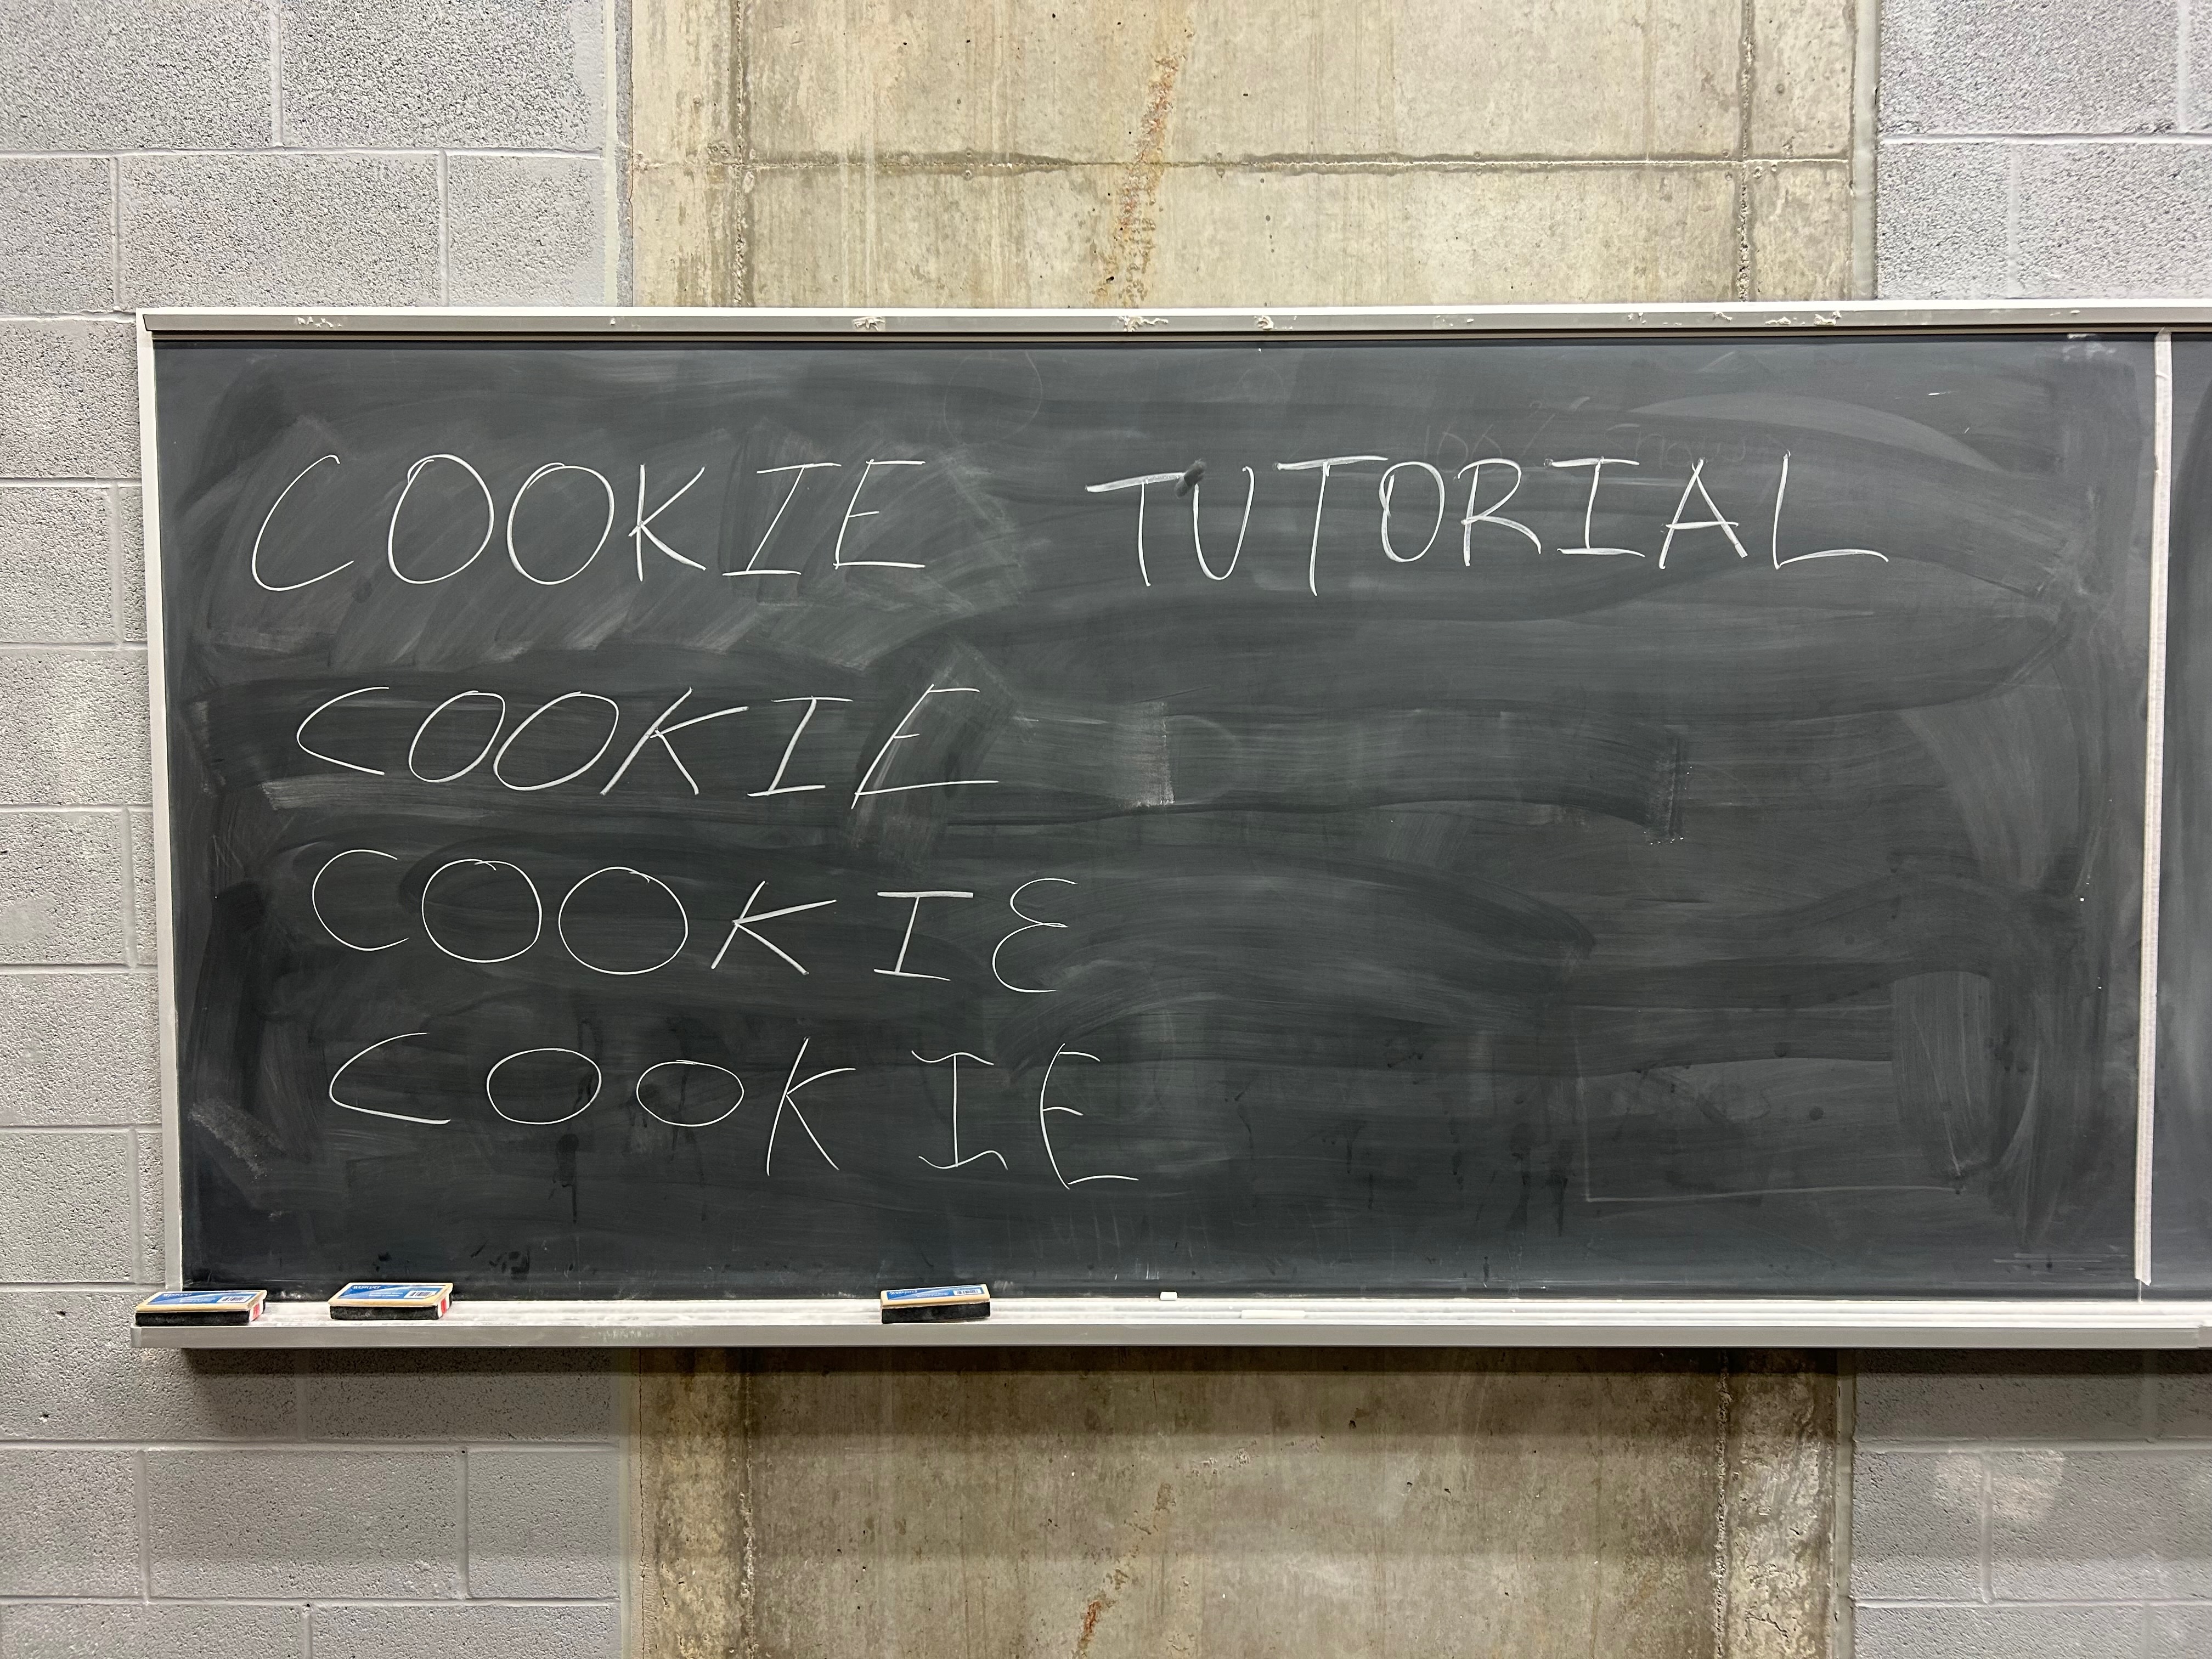 COOKIE TUTORIAL
COOKIE
COOKIE
COOKIE